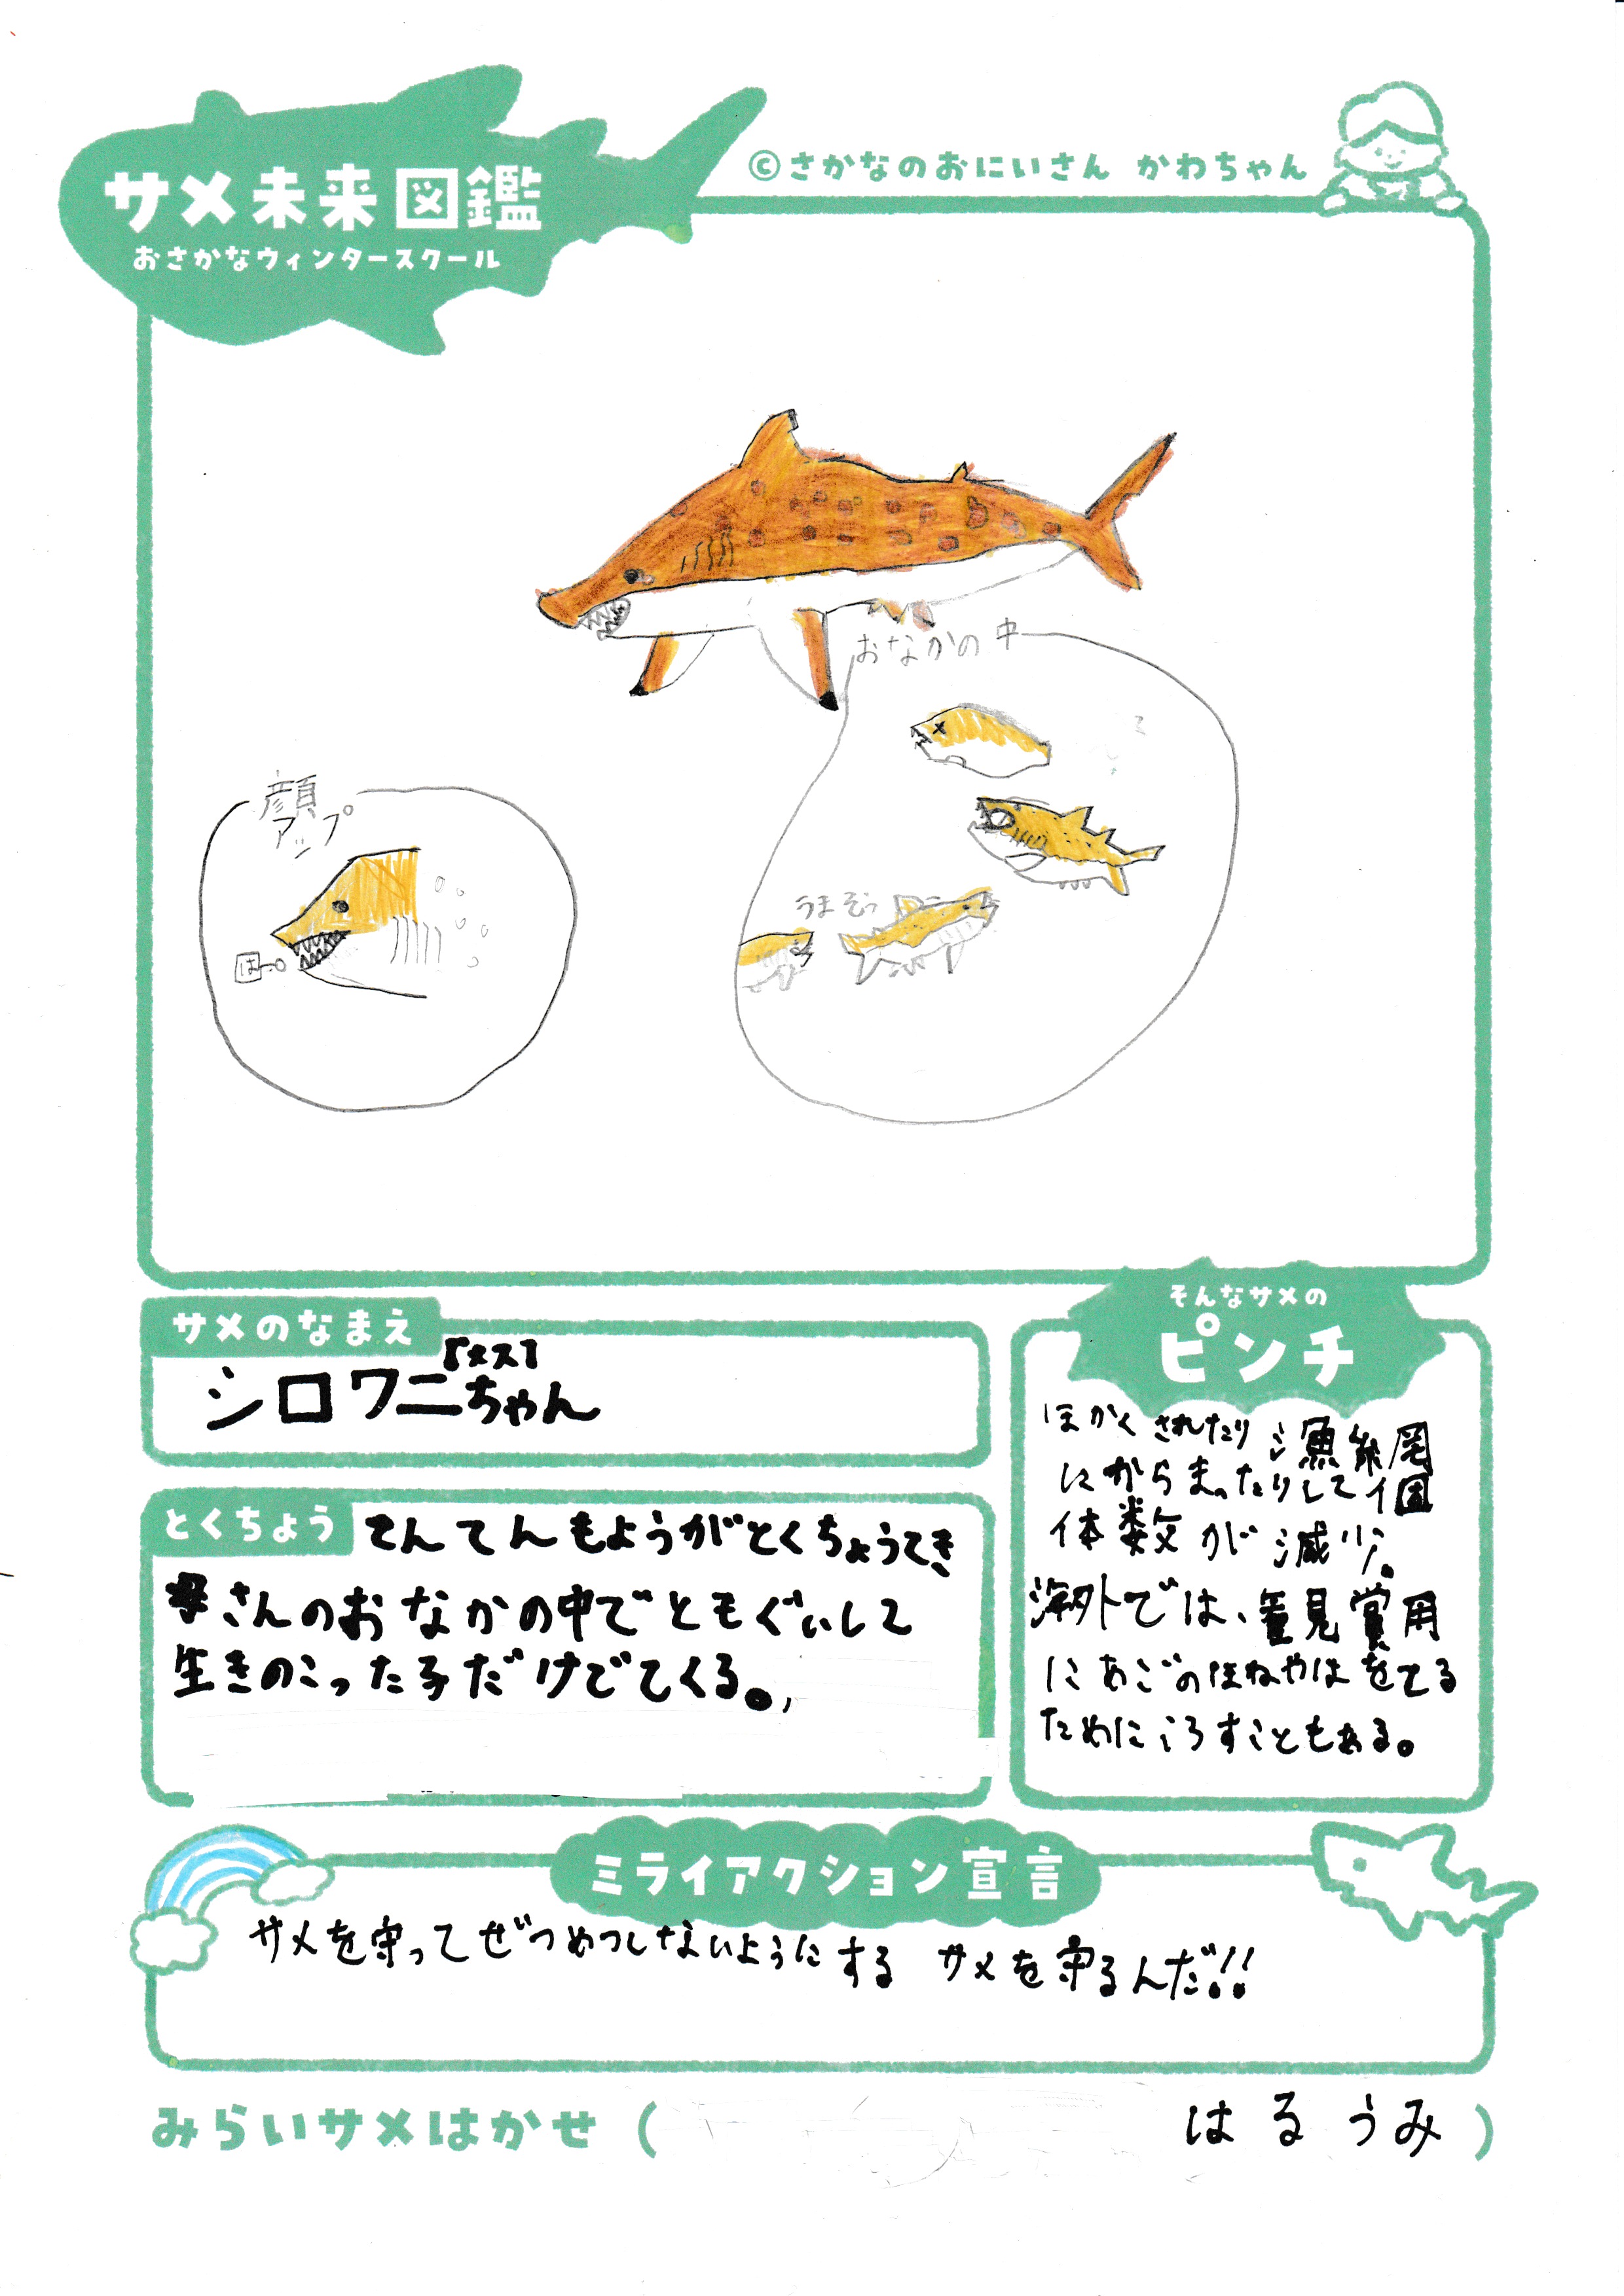 サメ未来図鑑
おさかなウィンタースクール
©さかなのおにいさん かわちゃん
おなかの中
顔
アップ
は→
うまそっ
サメのなまえ
【メス】
シロワニちゃん
とくちょう
てんてんもようがとくちょうてき
母さんのおなかの中でともぐいして
生きのこった子だけでてくる。
そんなサメの
ピンチ
ほかくされたり漁網
にからまったりして個
体数が減少。
海外では、観賞用
にあごのほねやはをとる
ためにころすこともある。
ミライアクション宣言
サメを守ってぜつめつしないようにする サメを守るんだ!!
みらいサメはかせ( はるうみ )